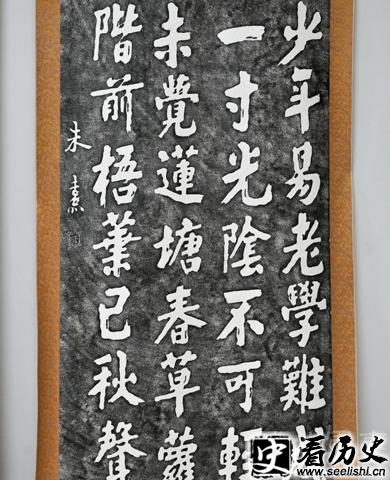 少年易老學難
一寸光陰不可輕
未覺蓮塘春草
階前梧葉已秋聲
朱熹
史看历史
www.seelishi.cn